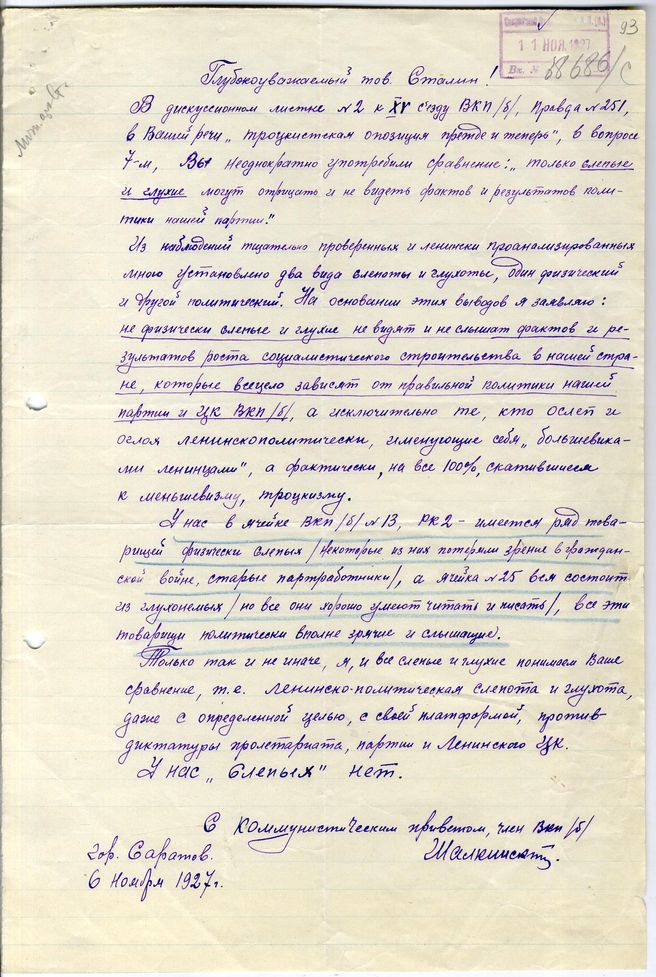 93
11 НОЯ. 1927
Вх. №
Глубокоуважаемый тов. Сталин!
В дискуссионном листке №2 к XV с'езду ВКП/б/, Правда №251,
в Вашей речи „троцкистская опозиция прежде и теперь", в вопросе
7-м, Вы неоднократно употребили сравнение: „только слепые
и глухие могут отрицать и не видеть фактов и результатов поли-
тики нашей партии."
Из наблюдений тщательно проверенных и ленински проанализированных
мною установлено два вида слепоты и глухоты, один физический
и другой политический. На основании этих выводов я заявляю:
не физически слепые и глухие не видят и не слышат фактов и ре-
зультатов роста социалистического строительства в нашей стра-
не, которые всецело зависят от правильной политики нашей
партии и ЦК ВКП/б/, а исключительно те, кто ослеп и
оглох ленинскополитически, именующие себя „большевика-
ми ленинцами", а фактически, на все 100%, скатившиеся
к меньшевизму, троцкизму.
У нас в ячейке ВКП/б/ №13, РК2 - имеется ряд това-
рищей физически слепых /некоторые из них потеряли зрение в граждан-
ской войне, старые партработники/, а ячейка №25 вся состоит
из глухонемых /но все они хорошо умеют читать и писать/, все эти
товарищи политически вполне зрячие и слышащие.
Только так и не иначе, я, и все слепые и глухие понимаем Ваше
сравнение, т.е. Ленинско-политическая слепота и глухота,
даже с определенной целью, с своей платформой, против
диктатуры пролетариата, партии и Ленинского ЦК.
У нас „Слепых" нет.
С коммунистическим приветом, член ВКП/б/
гор. Саратов.
6 ноября 1927г.